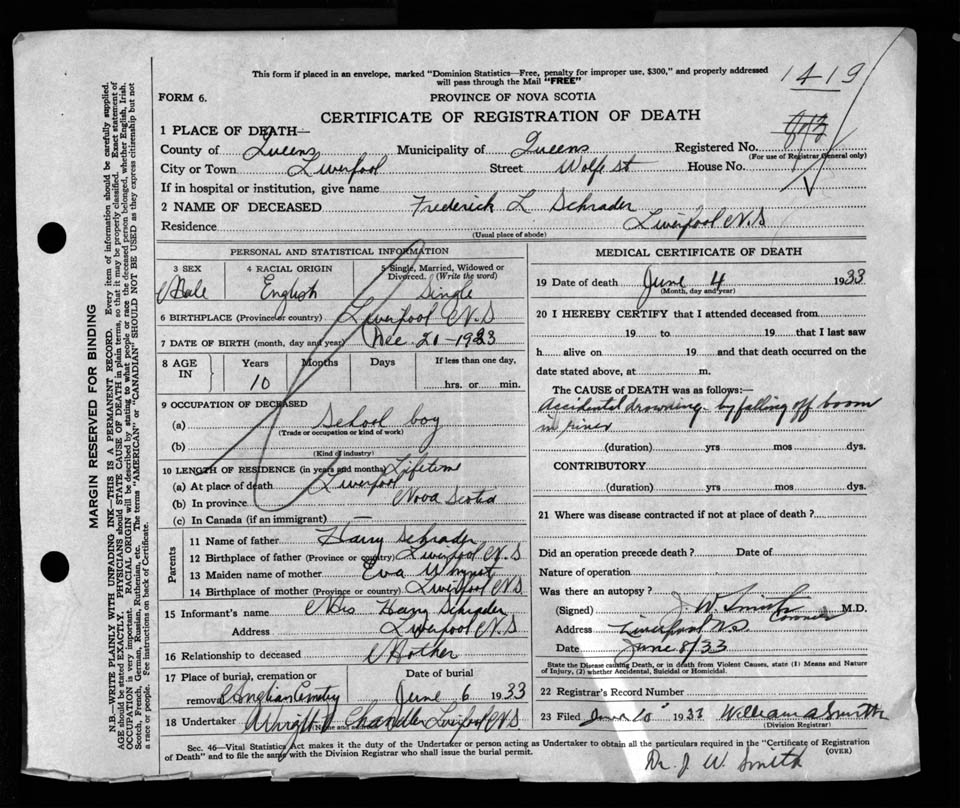 This form if placed in an envelope, marked "Dominion Statistics—Free, penalty for improper use, $300," and properly addressed
will pass through the Mail "FREE"
1419
FORM 6.
PROVINCE OF NOVA SCOTIA
CERTIFICATE OF REGISTRATION OF DEATH
1 PLACE OF DEATH—
County of Queens Municipality of Queens Registered No.
(For use of Registrar General only)
City or Town Liverpool Street Wolfe st House No.
If in hospital or institution, give name
2 NAME OF DECEASED Frederick L Schrader
Residence Liverpool N.S
(Usual place of abode)
PERSONAL AND STATISTICAL INFORMATION
3 SEX Male
4 RACIAL ORIGIN English
5 Single, Married, Widowed or Divorced. (Write the word) Single
6 BIRTHPLACE (Province or country) Liverpool N.S
7 DATE OF BIRTH (month, day and year) Dec 21-
8 AGE IN Years 10 Months Days If less than one day, hrs. or min.
9 OCCUPATION OF DECEASED
(a) School boy
(Trade or occupation or kind of work)
(b)
(Kind of industry)
10 LENGTH OF RESIDENCE (in years and months) Lifetime
(a) At place of death Liverpool
(b) In province Nova Scotia
(c) In Canada (if an immigrant) —
Parents
11 Name of father Harry Schrader
12 Birthplace of father (Province or country) Liverpool N.S
13 Maiden name of mother Eva Whynot
14 Birthplace of mother (Province or country) Liverpool N.S
15 Informant's name Mrs Harry Schrader
Address Liverpool N.S
16 Relationship to deceased Mother
17 Place of burial, cremation or removal Date of burial
June 6 1933
18 Undertaker Chandler Liverpool N.S
MEDICAL CERTIFICATE OF DEATH
19 Date of death June 4 1933
(Month, day and year)
20 I HEREBY CERTIFY that I attended deceased from
19 to 19 that I last saw
h alive on 19 and that death occurred on the
date stated above, at m.
The CAUSE OF DEATH was as follows:—
Accidental drowning by falling off boom
in river
(duration) yrs mos dys.
CONTRIBUTORY
(duration) yrs mos dys.
21 Where was disease contracted if not at place of death?
Did an operation precede death? Date of
Nature of operation
Was there an autopsy?
(Signed) J. W. Smith M.D.
Coroner
Address Liverpool N.S.
Date June 8/33
State the Disease causing Death, or in death from Violent Causes, state (1) Means and Nature
of Injury, (2) whether Accidental, Suicidal or Homicidal.
22 Registrar's Record Number
23 Filed June 10 1933 William Smith
(Division Registrar)
Sec. 46—Vital Statistics Act makes it the duty of the Undertaker or person acting as Undertaker to obtain all the particulars required in the "Certificate of Registration
of Death" and to file the same with the Division Registrar who shall issue the burial permit.
(OVER)
Dr. J. W. Smith
MARGIN RESERVED FOR BINDING
N.B.—WRITE PLAINLY WITH UNFADING INK—THIS IS A PERMANENT RECORD. Every item of information should be carefully supplied.
AGE should be stated EXACTLY. PHYSICIANS should STATE CAUSE OF DEATH in plain terms, so that it may be properly classified. Exact statement of
OCCUPATION is very important. RACIAL ORIGIN will be described by stating to what people or race the deceased person belonged, whether English, Irish,
Scotch, French, German, Russian, Ruthenian, etc. The terms "AMERICAN" or "CANADIAN" SHOULD NOT BE USED as they express citizenship but not
a race or people. Fee instructions on back of Certificate.